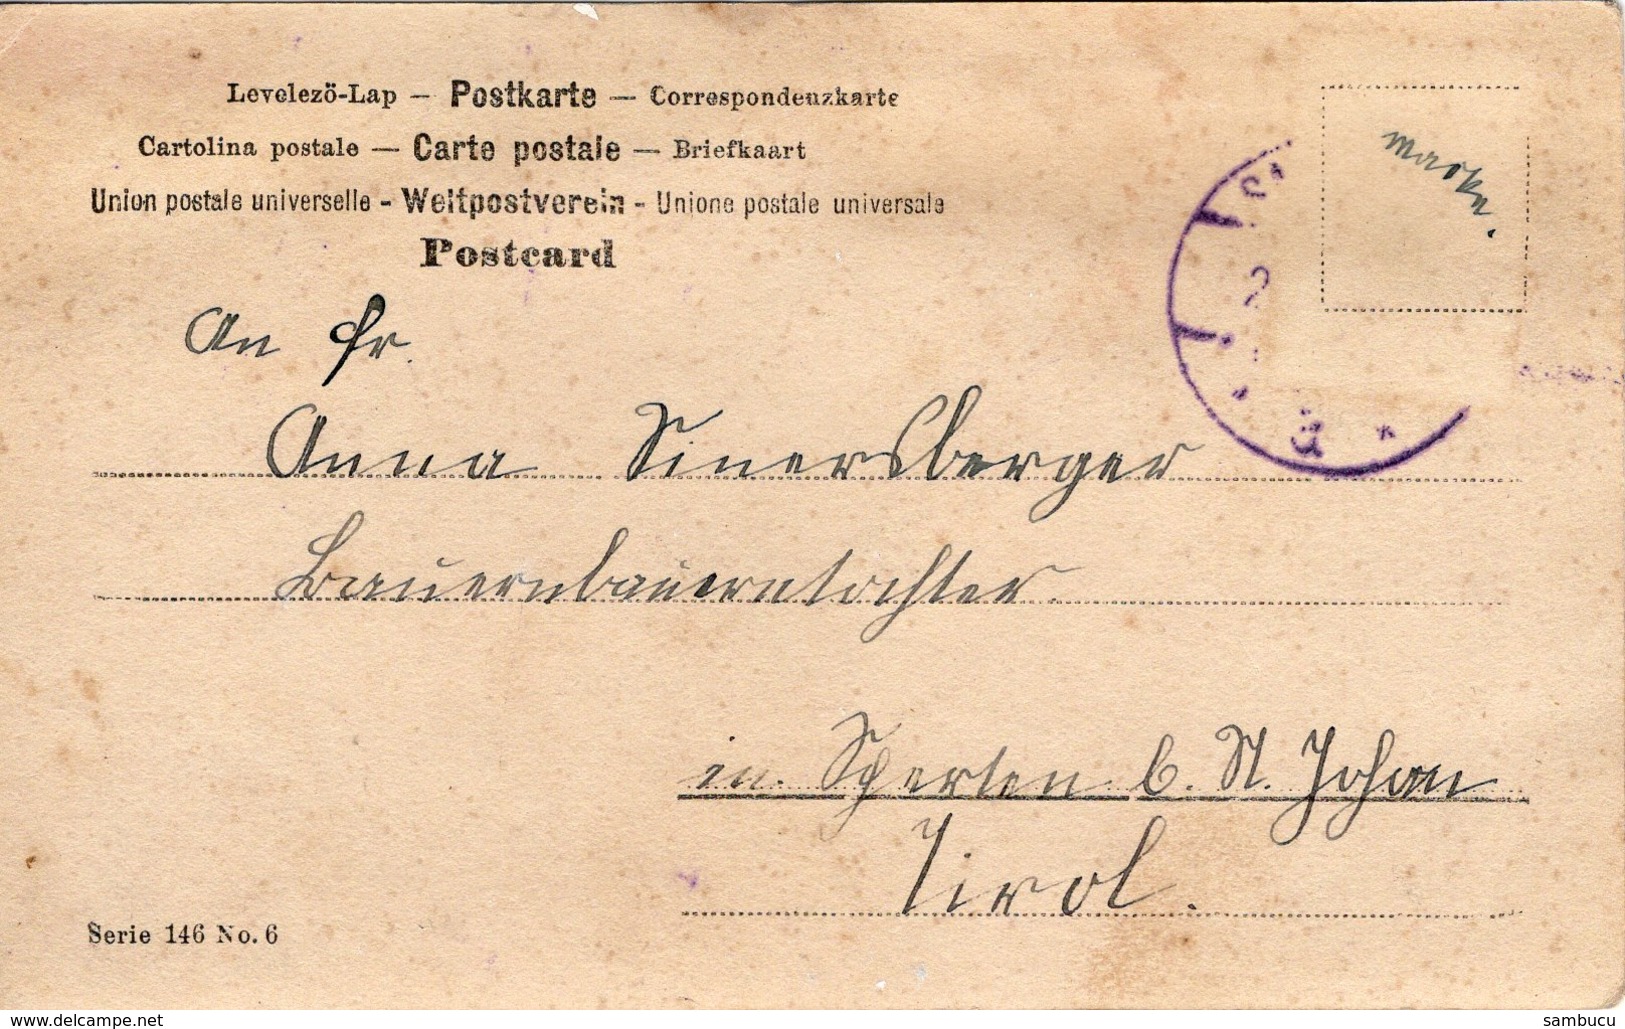 Levelezö-Lap — Postkarte — Correspondenzkarte
Cartolina postale — Carte postale — Briefkaart
Union postale universelle - Weltpostverein - Unione postale universale
Postcard
Marke.
2
An Fr.
Anna Sinersberger
Bauernbauerntochter.
in Sperten b. St. Johan
Tirol.
Serie 146 No. 6
www.delcampe.net
sambucu